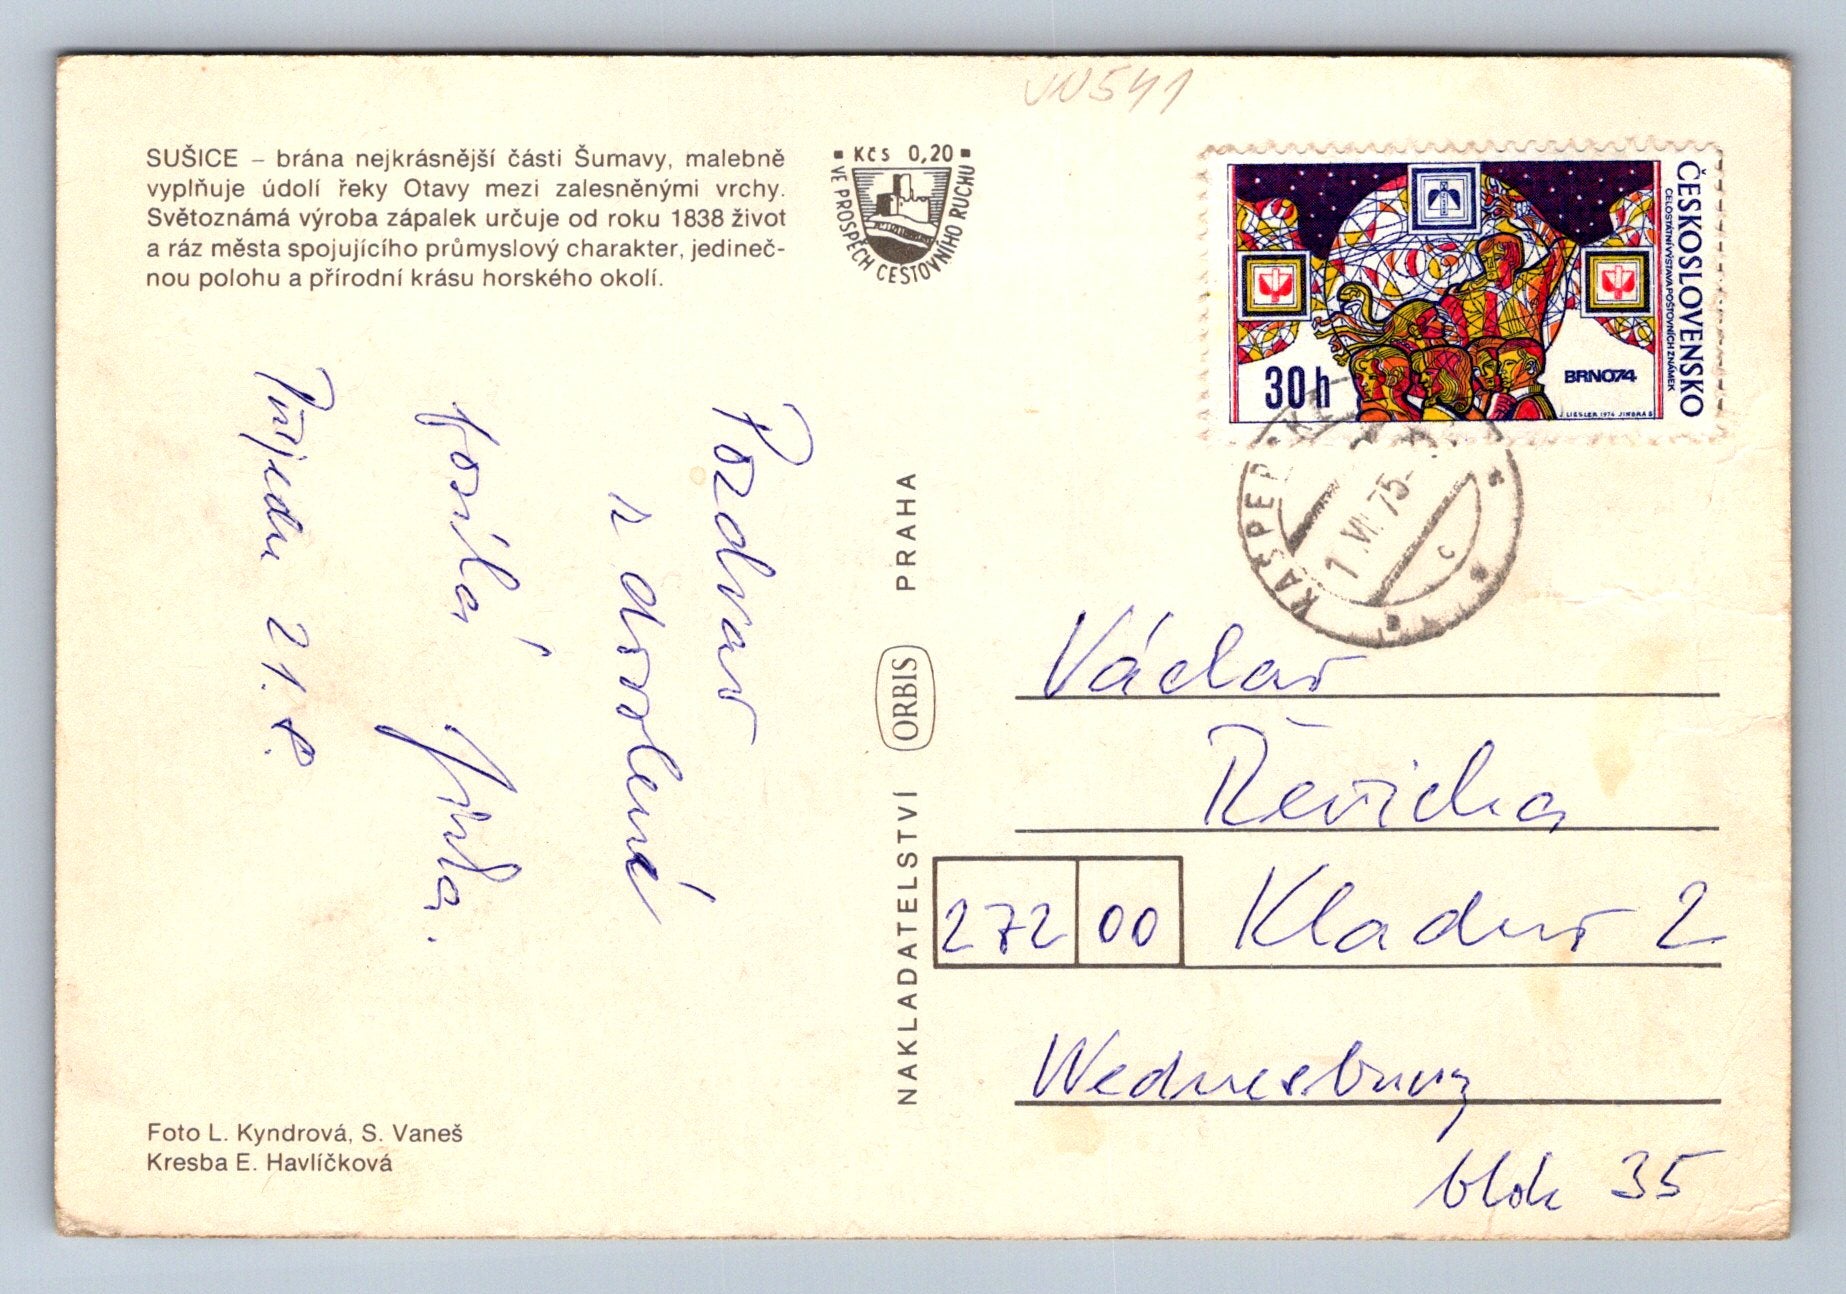 VN541
SUŠICE – brána nejkrásnější části Šumavy, malebně
vyplňuje údolí řeky Otavy mezi zalesněnými vrchy.
Světoznámá výroba zápalek určuje od roku 1838 život
a ráz města spojujícího průmyslový charakter, jedineč-
nou polohu a přírodní krásu horského okolí.
Kčs 0,20
VE PROSPĚCH CESTOVNÍHO RUCHU
ČESKOSLOVENSKO
CELOSTÁTNÍ VÝSTAVA POŠTOVNÍCH ZNÁMEK
30 h
BRNO74
J. LIESLER 1974 JINDRA S
KAŠPER
75
C
Pozdrav
z dovolené
posílá
Přijedu 21. 8.
NAKLADATELSTVÍ ORBIS PRAHA
Václav
Řevička
272 00 Kladno 2
Wednesbury
blok 35
Foto L. Kyndrová, S. Vaneš
Kresba E. Havlíčková